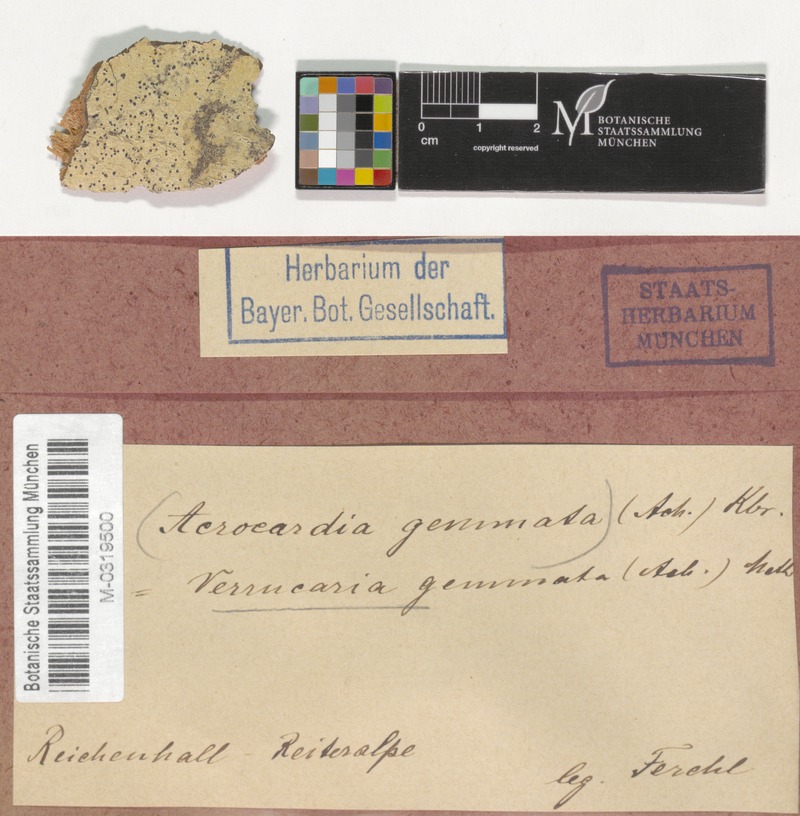 0 1 2
cm
copyright reserved
M BOTANISCHE
STAATSSAMMLUNG
MÜNCHEN
Herbarium der
Bayer. Bot. Gesellschaft.
STAATS-
HERBARIUM
MÜNCHEN
Botanische Staatssammlung München
M-0319500
(Acrocordia gemmata) (Ach.) Kbr.
= Verrucaria gemmata (Ach.)
Reichenhall - Reiteralpe
leg. Ferchl